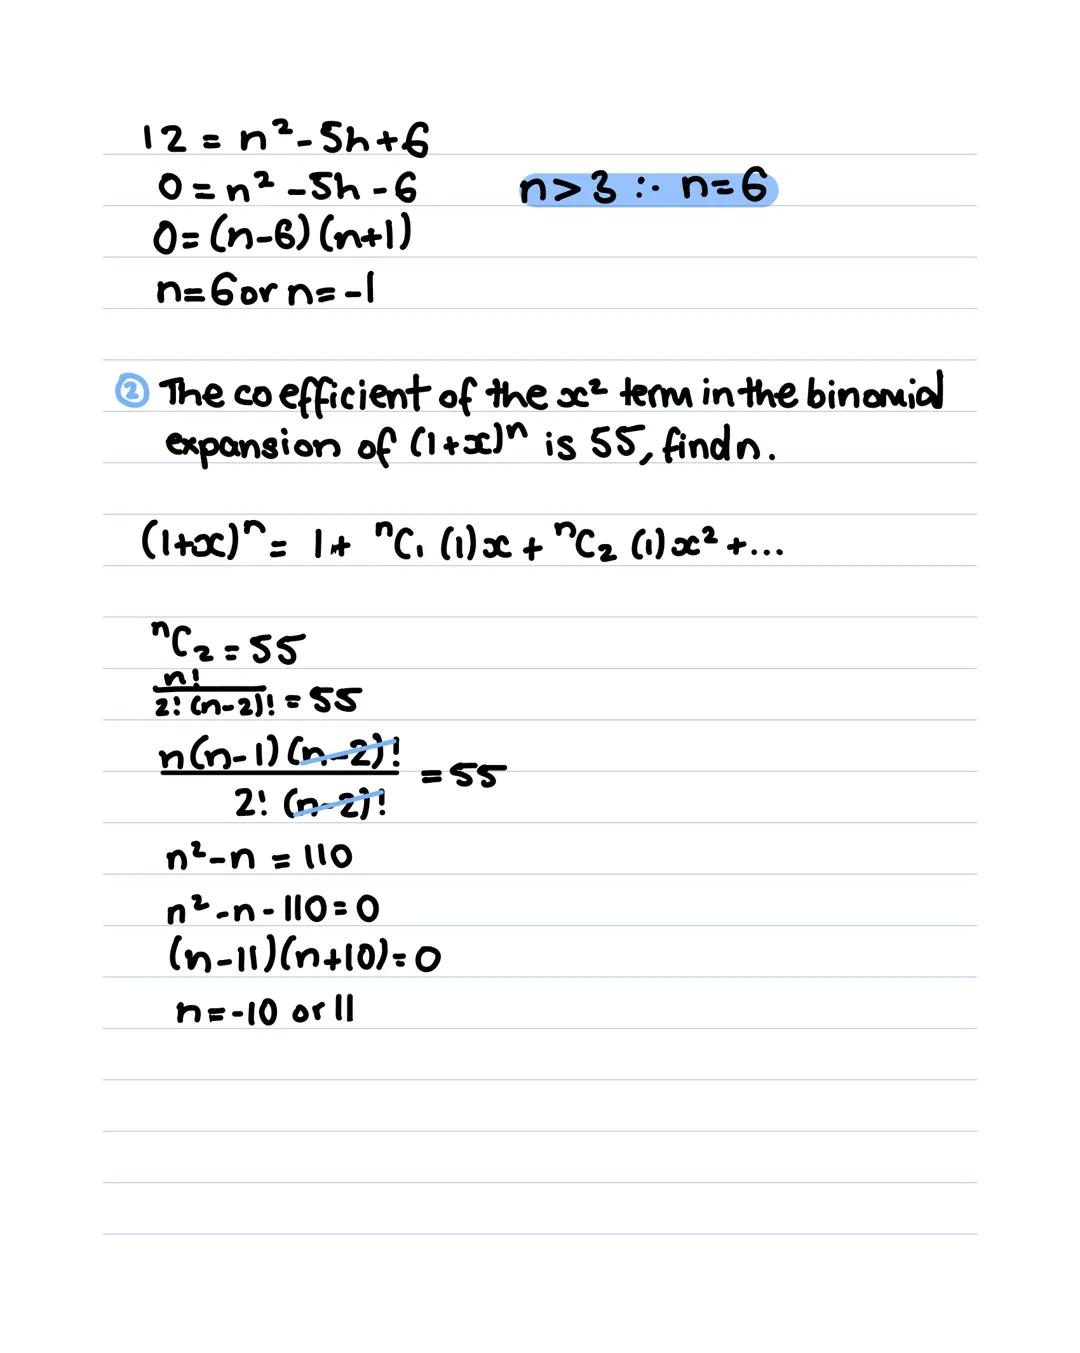 12 = n² - 5n + 6
0 = n² - 5n - 6
n > 3 ∴ n = 6
0 = (n-6)(n+1)
n = 6 or n = -1
② The coefficient of the x² term in the binomial
expansion of (1+x)ⁿ is 55, find n.
(1+x)ⁿ = 1 + ⁿC₁ (1)x + ⁿC₂ (1)x² + ...
ⁿC₂ = 55
n!
2! (n-2)! = 55
n(n-1)(n-2)!
= 55
2! (n-2)!
n² - n = 110
n² - n - 110 = 0
(n-11)(n+10) = 0
n = -10 or 11